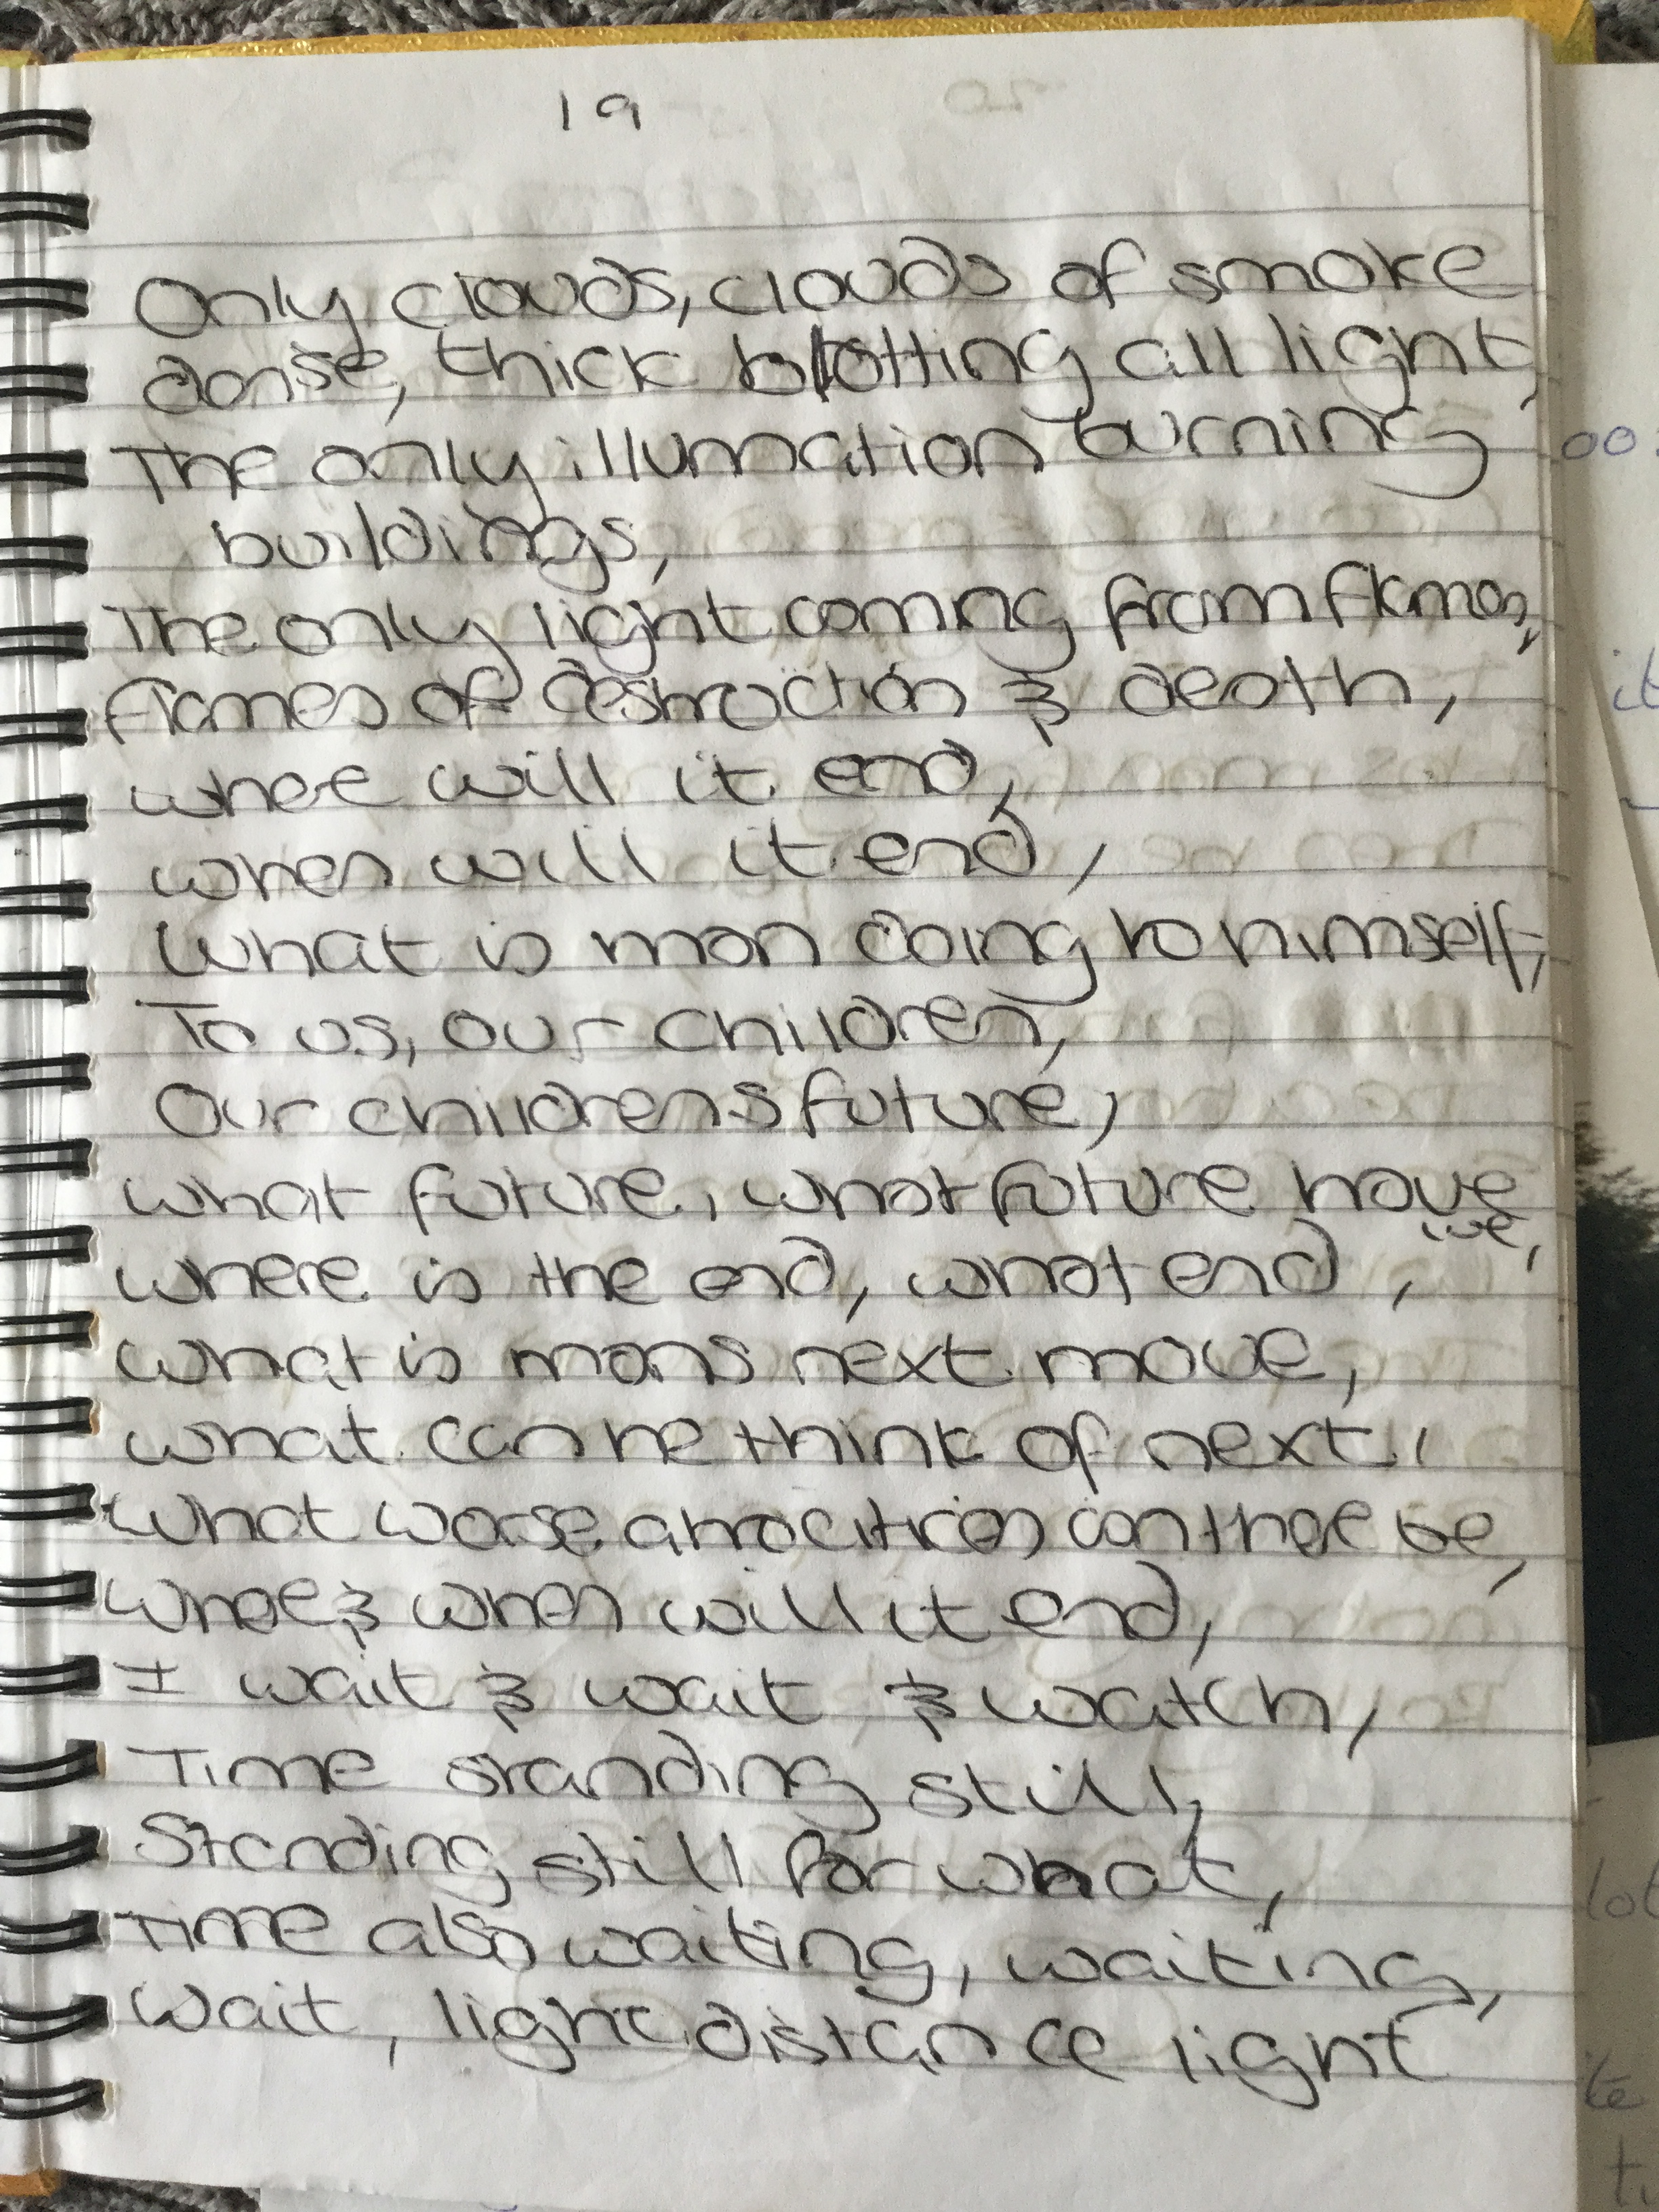 19
Only clouds, clouds of smoke
danse, thick blotting all light,
The only illumation burning
buildings,
The only light coming from flames,
flames of destruction & death,
where will it end,
when will it end,
What is man doing to himself,
To us, our children,
Our childrens future,
what future, what future have
we,
where is the end, what end,
what is mans next move,
what can he think of next,
what worse atrocities can there be,
where & when will it end,
I wait & wait & watch,
Time standing still,
Standing still for what,
Time also waiting, waiting,
Wait, light distance light
00
it
lot
te